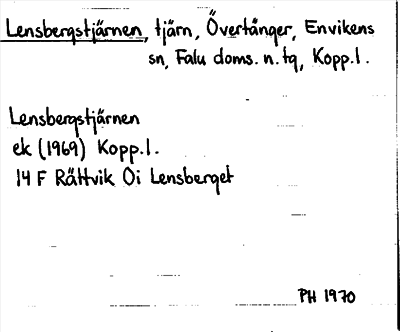 Lensbergstjärnen, tjärn, Övertånger, Envikens
sn, Falu doms. n. tg, Kopp. l.
Lensbergstjärnen
ek (1969) Kopp. l.
14 F Rättvik Oi Lensberget
PH 1970